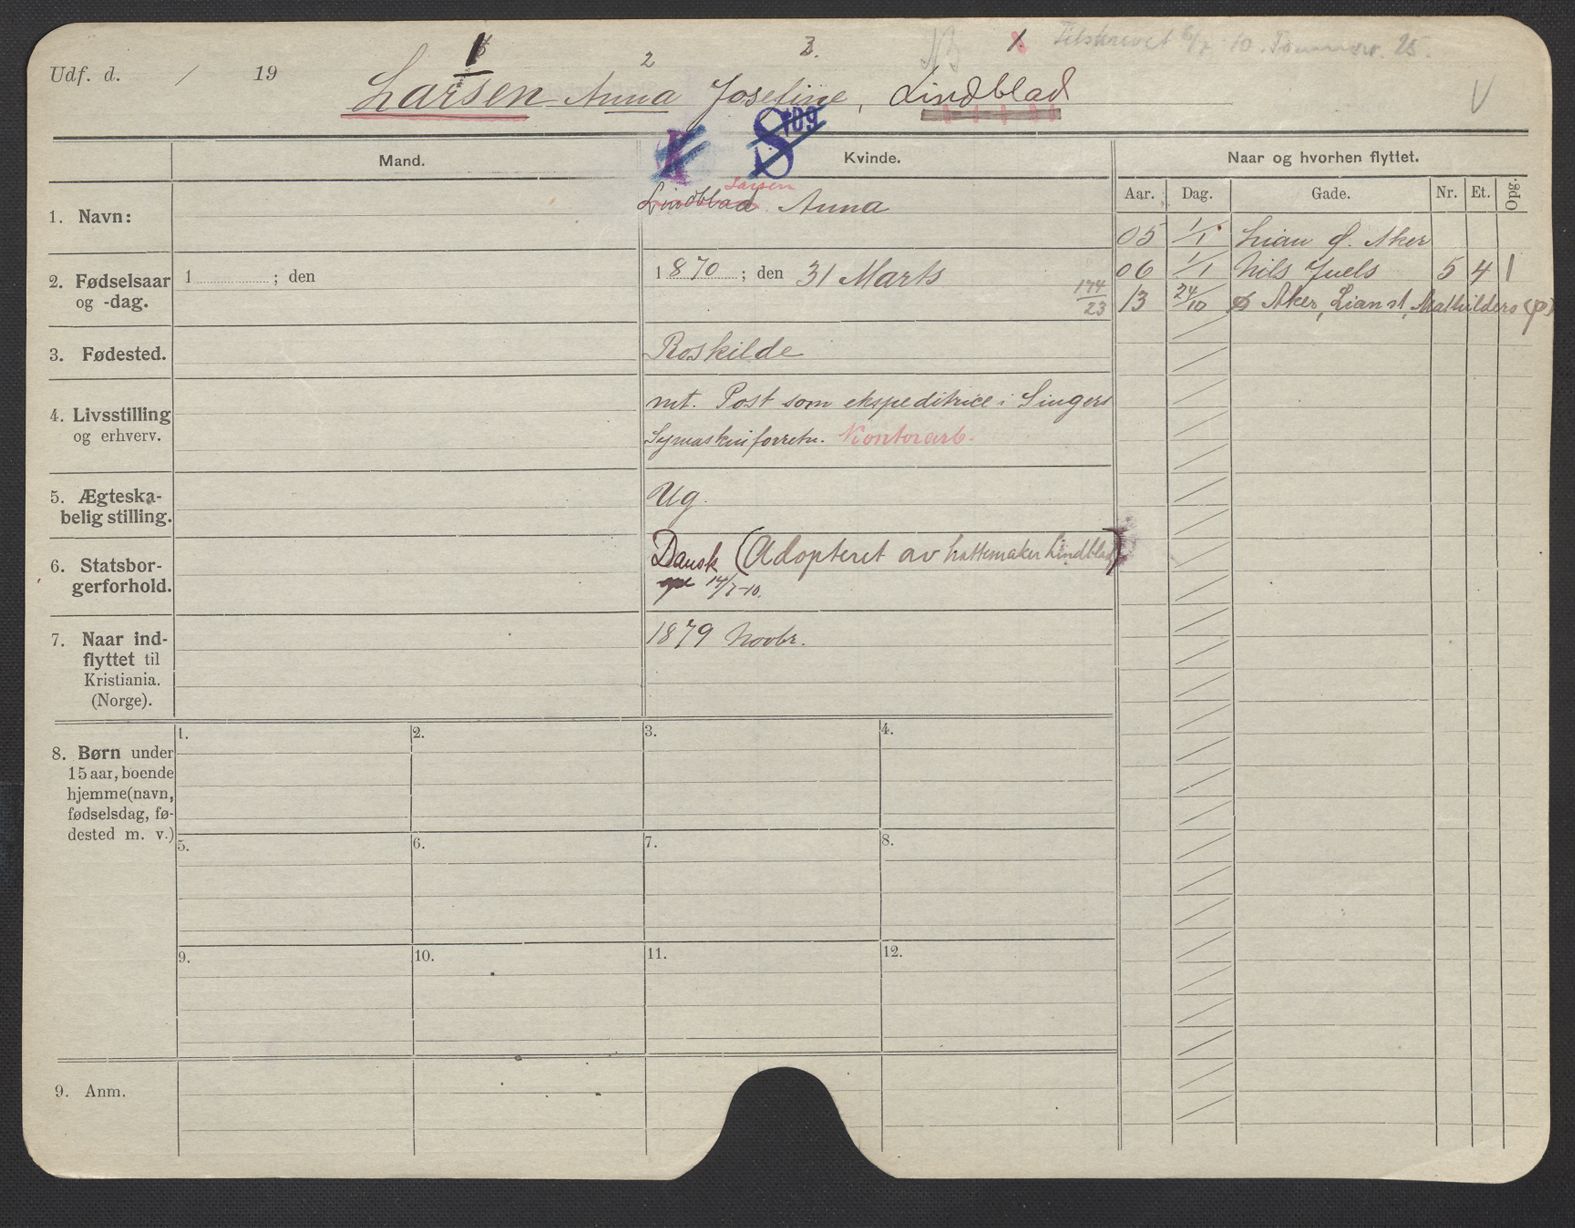 1 2 3. 1.
Udf. d. / 19
Larsen Anna Josefine, Lindblad
V
S 109
Mand. Kvinde. Naar og hvorhen flyttet.
Aar. Dag. Gade. Nr. Et. Opg.
Larsen
1. Navn: Lindblad Anna
05 1/1 Lian Ø. Aker
2. Fødselsaar og -dag. 1 ; den 1870 ; den 31 Marts
174/23
06 1/1 Nils Juels 5 4 1
13 24/10 Ø Aker, Lian st, Mathildero (P)
3. Fødested. Roskilde
4. Livsstilling og erhverv. mt. Post som ekspeditrice i Singers
Symaskinforretn. Kontorarb.
5. Ægteska-
belig stilling. Ug.
6. Statsbor-
gerforhold. Dansk (Adopteret av hattemaker Lindblad)
14/7-10.
7. Naar ind-
flyttet til
Kristiania.
(Norge).
1879 Novbr.
8. Børn under
15 aar, boende
hjemme(navn,
fødselsdag, fø-
dested m. v.)
1. 2. 3. 4.
5. 6. 7. 8.
9. 10. 11. 12.
9. Anm.